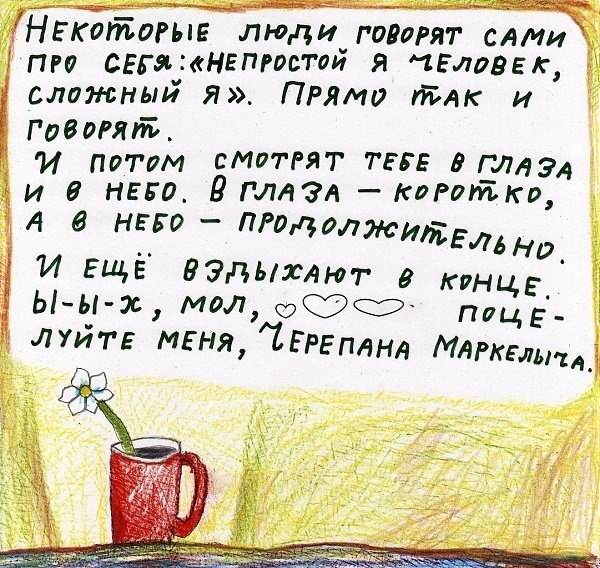 Некоторые люди говорят сами
про себя: «непростой я человек,
сложный я». Прямо так и
говорят.
И потом смотрят тебе в глаза
и в небо. В глаза — коротко,
а в небо — продолжительно.
И ещё вздыхают в конце.
Ы-ы-х, мол, поце-
луйте меня, Черепана Маркелыча.